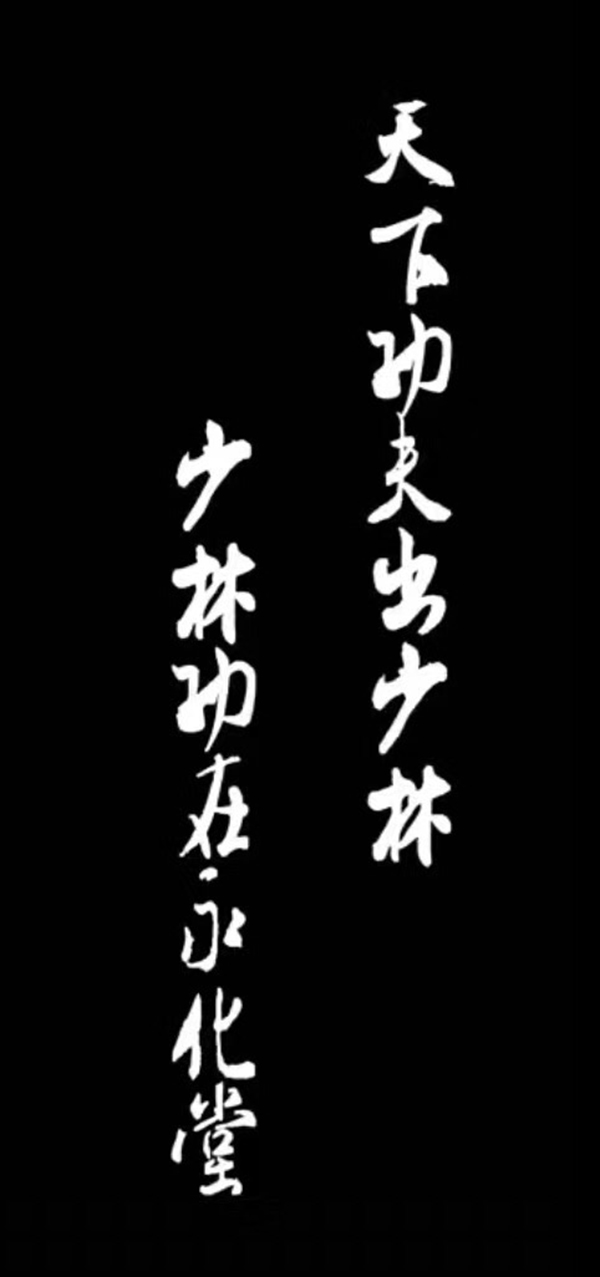 天下功夫出少林
少林功在永化堂